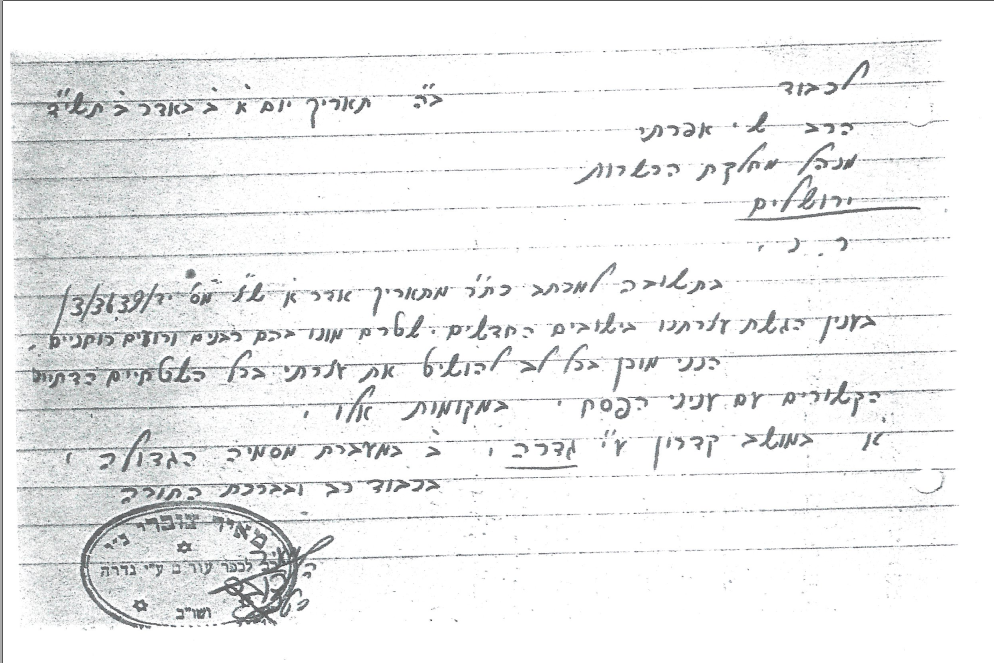 לכבוד
ב"ה תאריך יום א' ב' באדר ב' תשי"ד
הרב ש. י. אפרתי
מנהל מחלקת הכשרות
ירושלים
ר. נ.
בתשובה למכתב כת"ר מתאריך אדר א' ש"ז מס' יד/3/3639/
בענין הגשת עזרתנו בישובים החדשים. שטרם מונו בהם רבנים ורועים רוחניים.
הנני מוכן בכל לב להושיט את עזרתי בכל השטחיים הדתיים
הקשורים עם עניני הפסח. במקומות אלו.
א' במושב קדרון ע"י גדרה, ב' במעברת מסמיה הגדולה,
בכבוד רב ובברכת התורה
מאיר צוברי ס"ט
לכפר עורים ע"י גדרה
ושו"ב